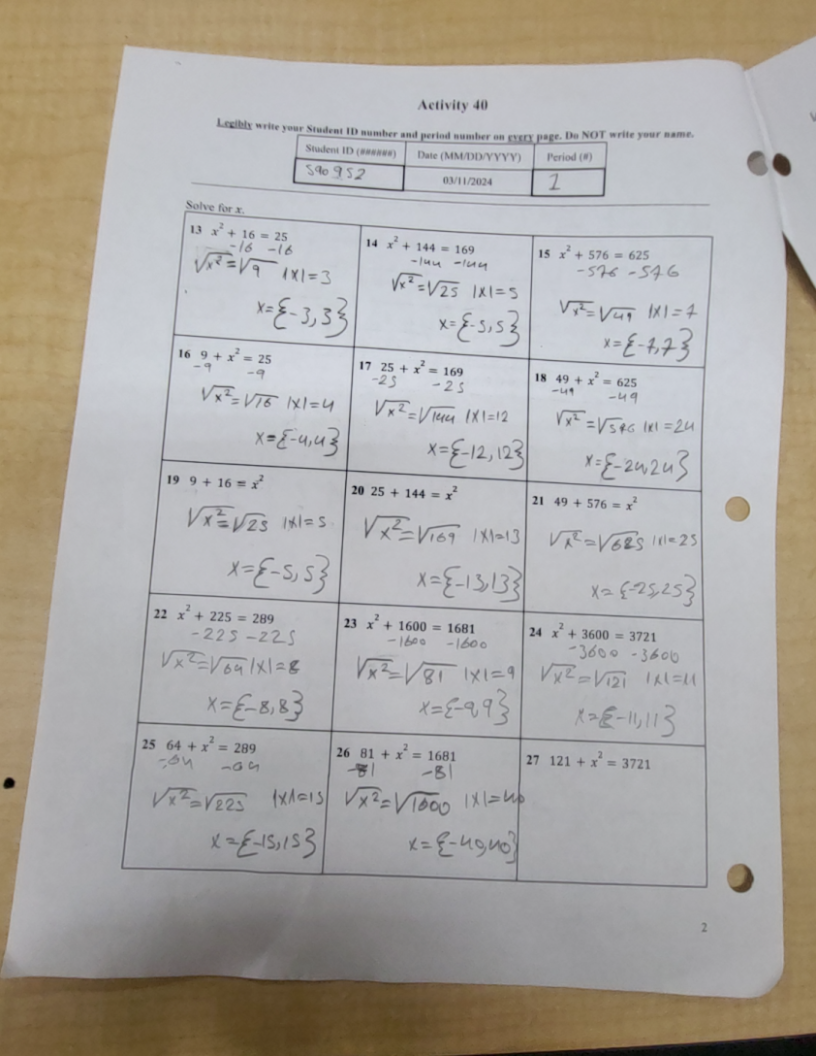 Activity 40
Legibly write your Student ID number and period number on every page. Do NOT write your name.
Student ID (######) Date (MM/DD/YYYY) Period (#)
590952 03/11/2024 1
Solve for x.
13 x² + 16 = 25
-16 -16
√x² = √9 |x|=3
x={-3,3}
14 x² + 144 = 169
-144 -144
√x² = √25 |x|=5
x={-5,5}
15 x² + 576 = 625
-576 -576
√x² = √49 |x|=7
x={-7,7}
16 9 + x² = 25
-9 -9
√x² = √16 |x|=4
x={-4,4}
17 25 + x² = 169
-25 -25
√x² = √144 |x|=12
x={-12,12}
18 49 + x² = 625
-49 -49
√x² = √576 |x|=24
x={-24,24}
19 9 + 16 = x²
√x² = √25 |x|=5
x={-5,5}
20 25 + 144 = x²
√x² = √169 |x|=13
x={-13,13}
21 49 + 576 = x²
√x² = √625 |x|=25
x={-25,25}
22 x² + 225 = 289
-225 -225
√x² = √64 |x|=8
x={-8,8}
23 x² + 1600 = 1681
-1600 -1600
√x² = √81 |x|=9
x={-9,9}
24 x² + 3600 = 3721
-3600 -3600
√x² = √121 |x|=11
x={-11,11}
25 64 + x² = 289
-64 -64
√x² = √225 |x|=15
x={-15,15}
26 81 + x² = 1681
-81 -81
√x² = √1600 |x|=40
x={-40,40}
27 121 + x² = 3721
2